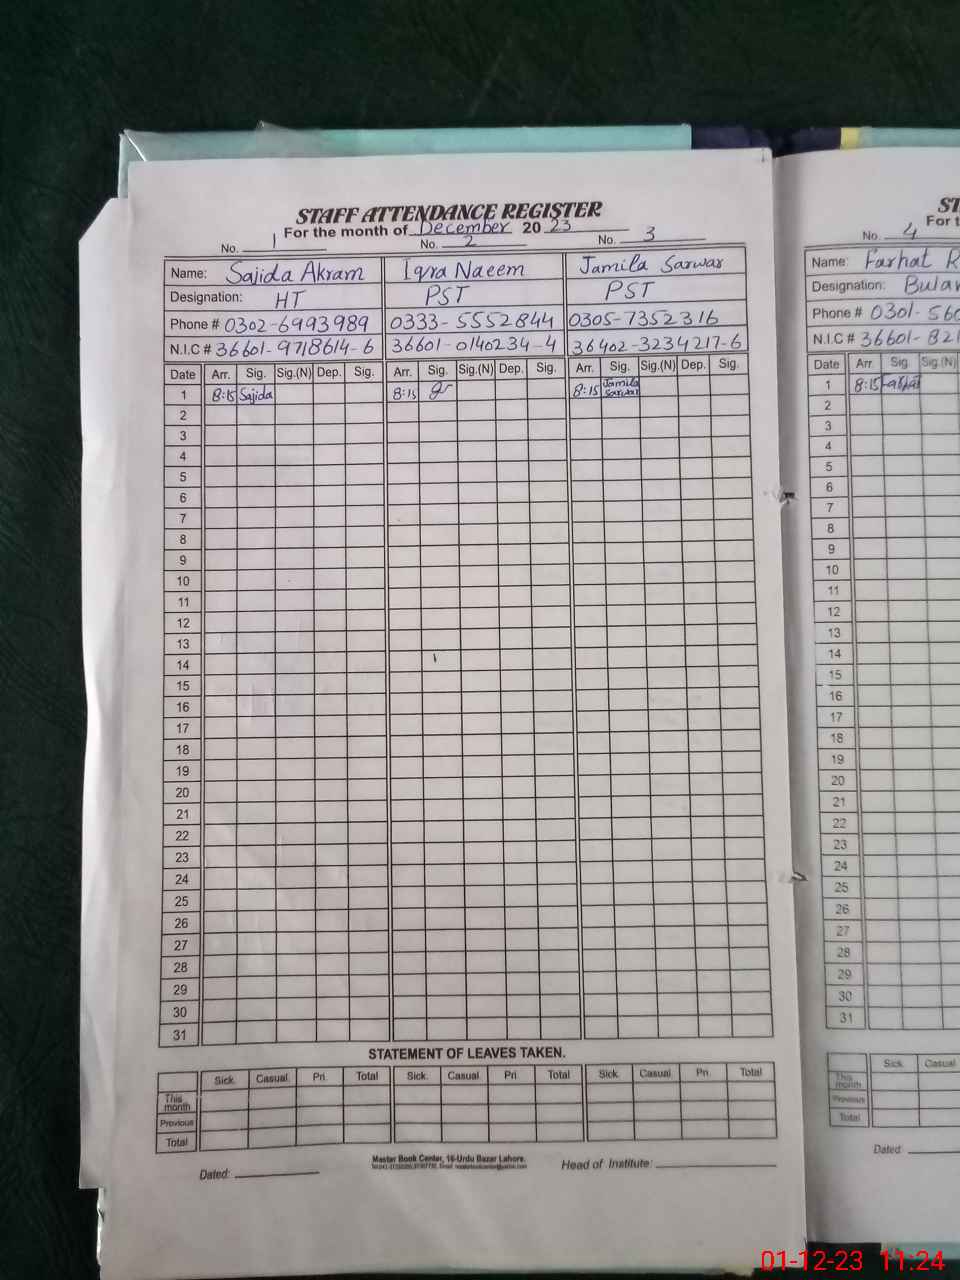 STAFF ATTENDANCE REGISTER
For the month of December 2023
No. 1 No. 2 No. 3
Name: Sajida Akram Iqra Naeem Jamila Sarwar
Designation: HT PST PST
Phone # 0302-6993989 0333-5552844 0305-7352316
N.I.C # 36601-9718614-6 36601-0140234-4 36402-3234217-6
Date Arr. Sig. Sig.(N) Dep. Sig. Arr. Sig. Sig.(N) Dep. Sig. Arr. Sig. Sig.(N) Dep. Sig.
1 8:15 Sajida 8:15 8:15 Jamila Sarwar
2
3
4
5
6
7
8
9
10
11
12
13
14
15
16
17
18
19
20
21
22
23
24
25
26
27
28
29
30
31
STATEMENT OF LEAVES TAKEN.
Sick. Casual Pri. Total Sick. Casual Pri. Total Sick. Casual Pri. Total
This month
Previous
Total
Master Book Center, 16-Urdu Bazar Lahore.
Dated: Head of Institute:
ST
For t
No. 4
Name: Farhat R
Designation: Bulaw
Phone # 0301-560
N.I.C # 36601-821
Date Arr. Sig. Sig.(N)
1 8:15 Farhat
2
3
4
5
6
7
8
9
10
11
12
13
14
15
16
17
18
19
20
21
22
23
24
25
26
27
28
29
30
31
Sick. Casual
This month
Previous
Total
Dated:
01-12-23 11:24